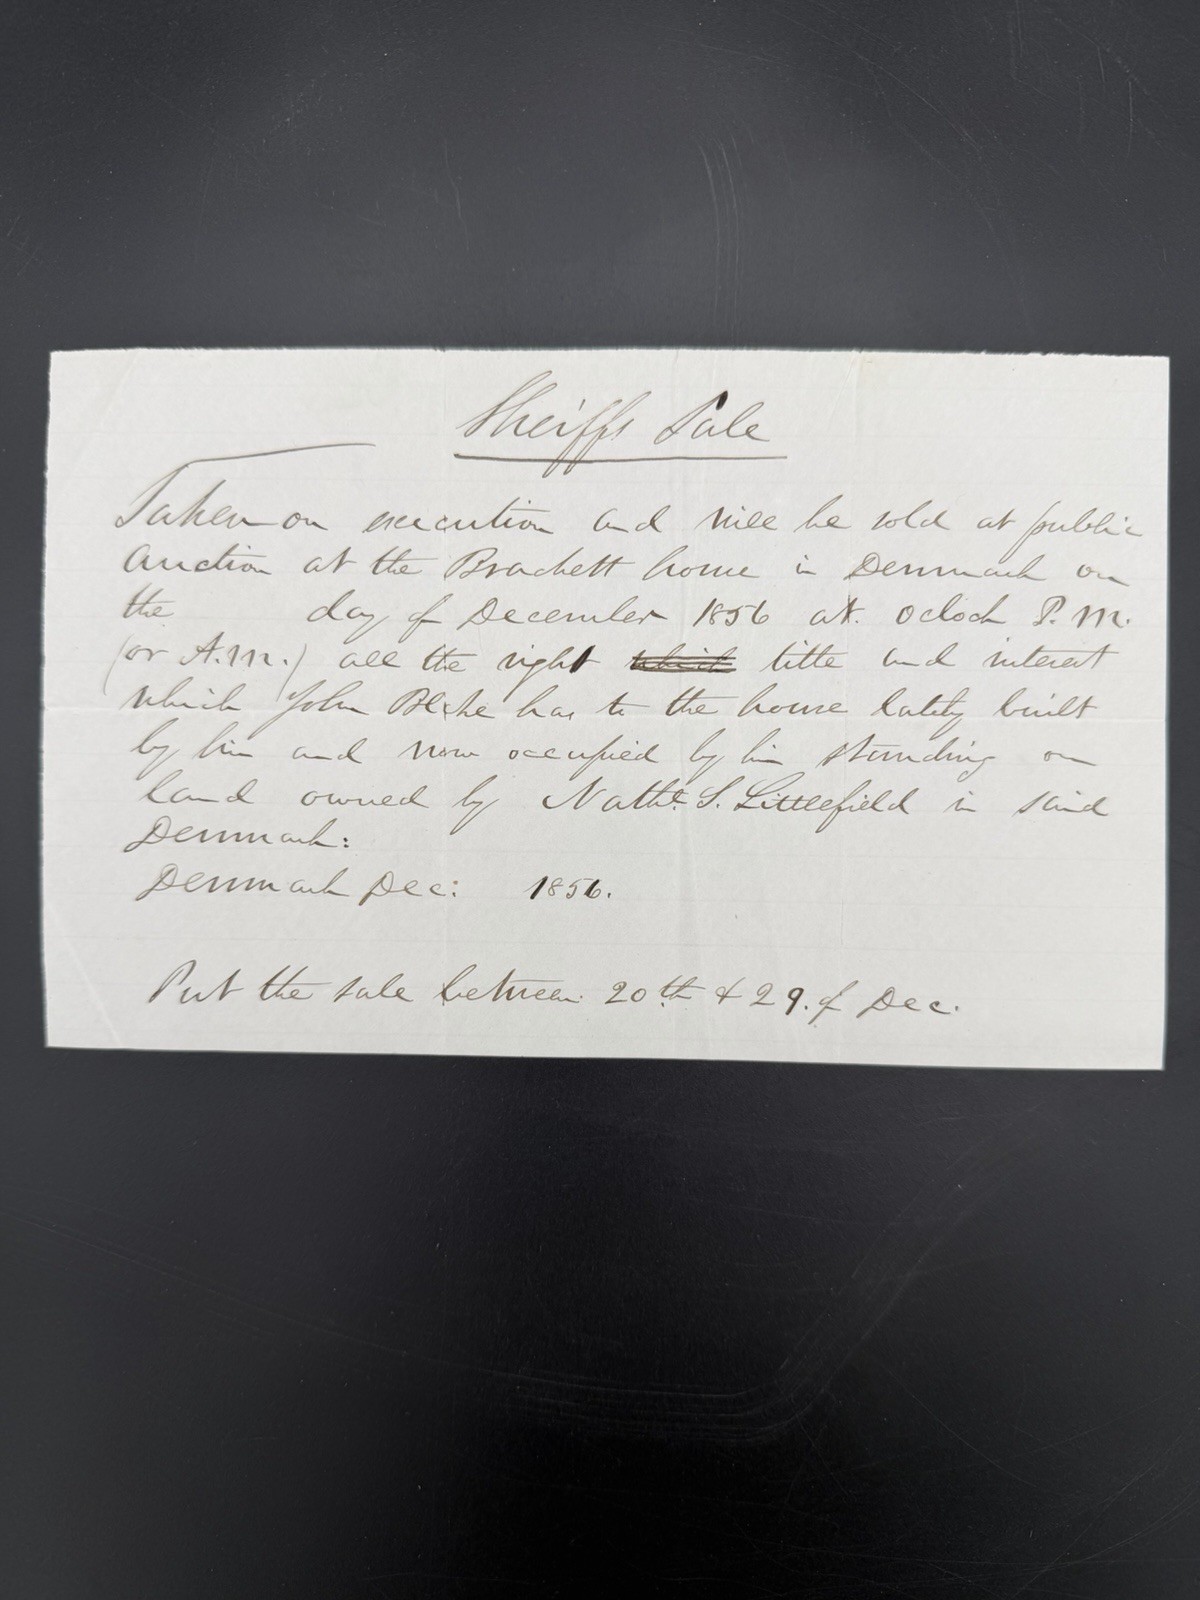 Sheriffs Sale
Taken on execution and will be sold at public
Auction at the Brackett house in Denmark on
the day of December 1856 at. oclock P.M.
(or A.M.) all the right which title and interest
which John Blake has to the house lately built
by him and now occupied by him standing on
land owned by Nathl. S. Littlefield in said
Denmark:
Denmark Dec: 1856.
Put the sale between 20th & 29. of Dec.